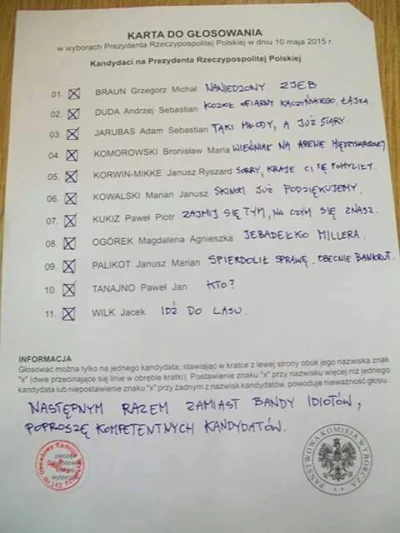 KARTA DO GŁOSOWANIA
w wyborach Prezydenta Rzeczypospolitej Polskiej w dniu 10 maja 2015 r.
Kandydaci na Prezydenta Rzeczypospolitej Polskiej
01. BRAUN Grzegorz Michał NAWIEDZONY ZJEB
02. DUDA Andrzej Sebastian KOZIOŁ OFIARNY KACZYŃSKIEGO. ŁAJZA.
03. JARUBAS Adam Sebastian TAKI MŁODY, A JUŻ STARY
04. KOMOROWSKI Bronisław Maria WIEŚNIAK NA ARENIE MIĘDZYNARODOWEJ
05. KORWIN-MIKKE Janusz Ryszard SORRY, KRAJE CI SIĘ POMYLIŁY.
06. KOWALSKI Marian Janusz SKINOM JUŻ PODZIĘKUJEMY.
07. KUKIZ Paweł Piotr ZAJMIJ SIĘ TYM, NA CZYM SIĘ ZNASZ.
08. OGÓREK Magdalena Agnieszka JEBADEŁKO MILLERA.
09. PALIKOT Janusz Marian SPIERDOLIŁ SPRAWĘ. OBECNIE BANKRUT.
10. TANAJNO Paweł Jan KTO?
11. WILK Jacek IDŹ DO LASU.
INFORMACJA
Głosować można tylko na jednego kandydata, stawiając w kratce z lewej strony obok jego nazwiska znak
"x" (dwie przecinające się linie w obrębie kratki). Postawienie znaku "x" przy nazwisku więcej niż jednego
kandydata lub niepostawienie znaku "x" przy żadnym z nazwisk kandydatów, powoduje nieważność głosu.
NASTĘPNYM RAZEM ZAMIAST BANDY IDIOTÓW,
POPROSZĘ KOMPETENTNYCH KANDYDATÓW.
PAŃSTWOWA KOMISJA WYBORCZA